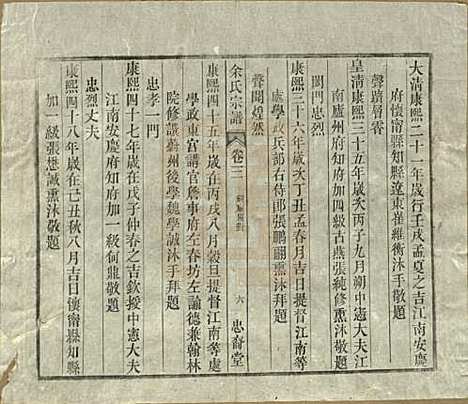 大清康熙二十一年歲行壬戌孟夏之吉江南安慶
府懷甯縣知縣遼東崔維衡沐手敬題
聲蹟層霄
皇清康熙三十五歲次丙子九月朔中憲大夫江
南廬州府知府加四級古燕張純修熏沐敬題
閥門忠烈
康熙三十六年歲次丁丑孟春月吉日提督江南等
處學政兵部右侍郎張鵬翮熏沐拜題
聲聞煌然
余氏宗譜
卷三
六
忠裔堂
康熙四十五年歲在丙戌八月穀旦提督江南等處
學政東宮講官詹事府左春坊左諭德兼翰林
院修譔蔚州後學魏學誠沐手拜題
忠孝一門
康熙四十七年歲在戊子仲春之吉欽授中憲大夫
江南安慶府知府加一級何龍敬題
忠烈丈夫
康熙四十八年歲在己丑秋八月吉日懷甯縣知縣
加一級張懋誠熏沐敬題